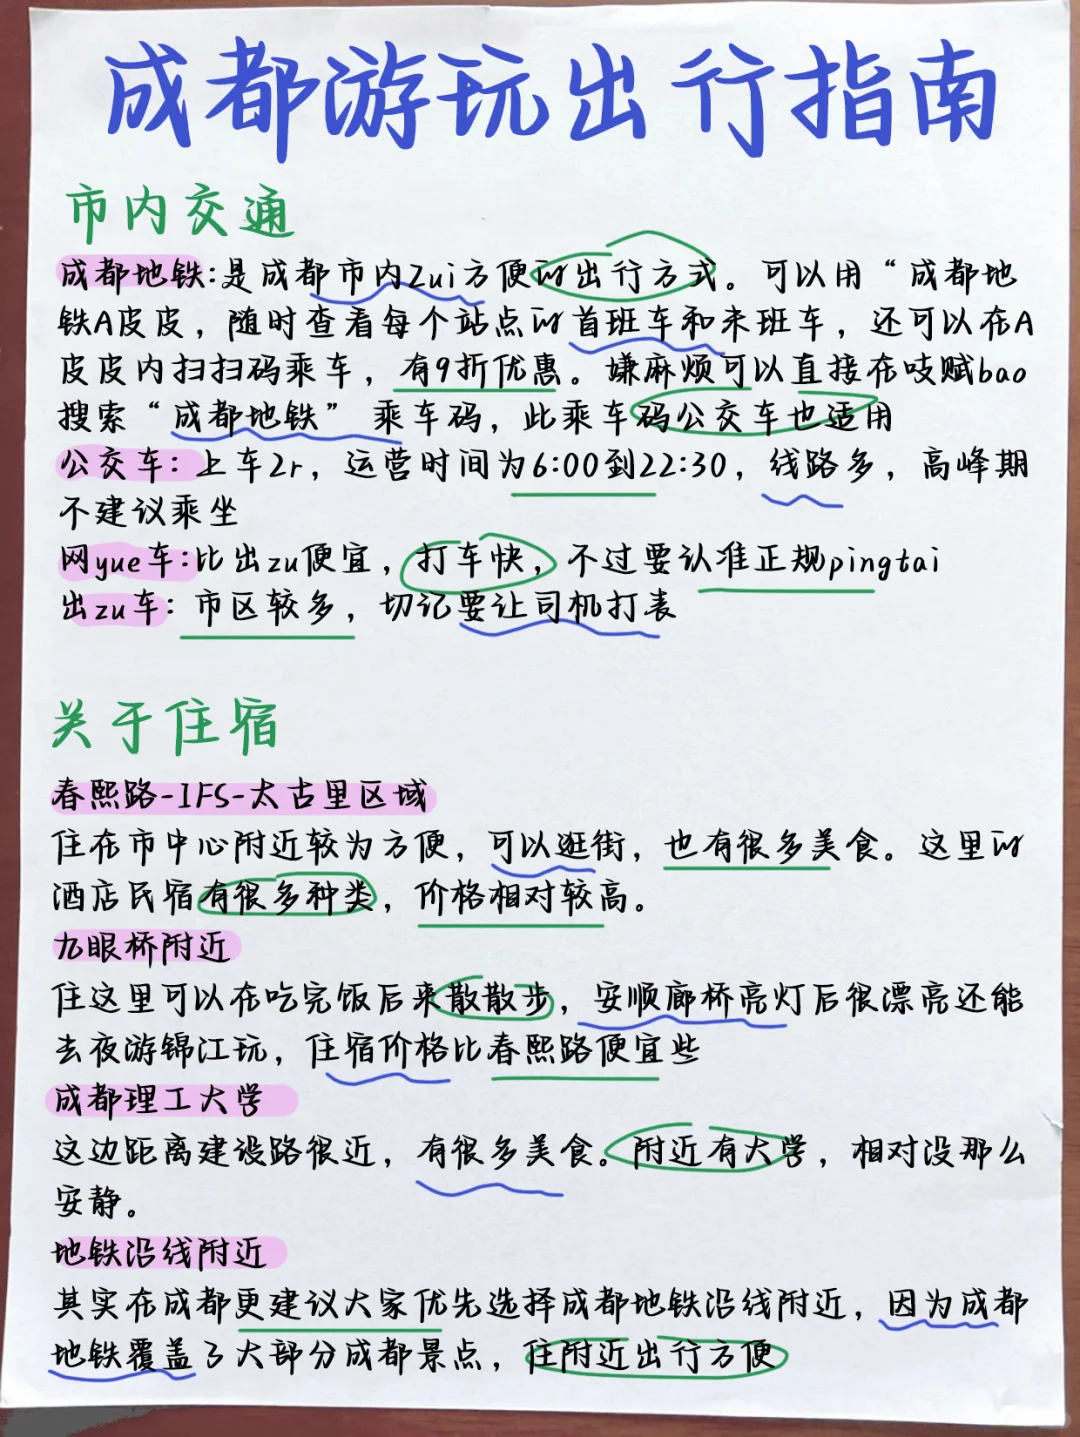 成都游玩出行指南
市内交通
成都地铁:是成都市内zui方便的出行方式。可以用“成都地
铁A皮皮，随时查看每个站点的首班车和末班车，还可以在A
皮皮内扫扫码乘车，有9折优惠。嫌麻烦可以直接在吱赋bao
搜索“成都地铁” 乘车码，此乘车码公交车也适用
公交车：上车2r，运营时间为6:00到22:30，线路多，高峰期
不建议乘坐
网yue车:比出zu便宜，打车快，不过要认准正规pingtai
出zu车：市区较多，切记要让司机打表
关于住宿
春熙路-IFS-太古里区域
住在市中心附近较为方便，可以逛街，也有很多美食。这里的
酒店民宿有很多种类，价格相对较高。
九眼桥附近
住这里可以在吃完饭后来散散步，安顺廊桥亮灯后很漂亮还能
去夜游锦江玩，住宿价格比春熙路便宜些
成都理工大学
这边距离建设路很近，有很多美食。附近有大学，相对没那么
安静。
地铁沿线附近
其实在成都更建议大家优先选择成都地铁沿线附近，因为成都
地铁覆盖了大部分成都景点，住附近出行方便